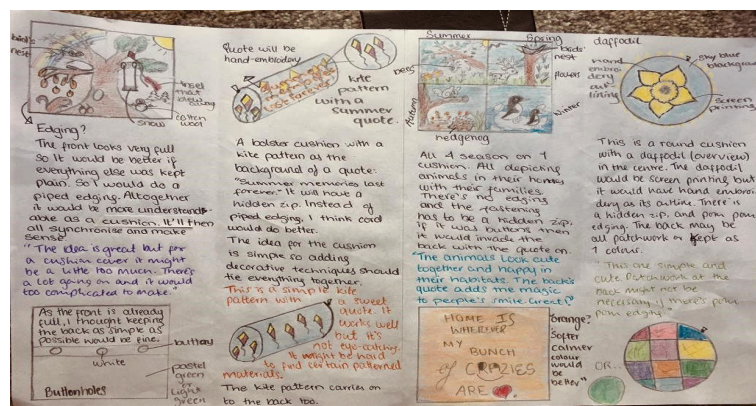 bird's
nest
snow
cotton
wool
Edging?
The front looks very full
so it would be better if
everything else was kept
plain. So I would do a
piped edging. Altogether
it would be more understand-
able as a cushion. It'll then
all synchronise and make
sense.
"The idea is great but for
a cushion cover it might
be a little too much. There's
a lot going on and it would
too complicated to make."
As the front is already
full, I thought keeping
the back as simple as
possible would be fine.
buttons
white
pastel
green
or
light
green
Buttonholes
Quote will be
hand embroidery
kite
pattern
with a
summer
quote.
A bolster cushion with a
kite pattern as the
background of a quote:
"Summer memories last
forever." It will have a
hidden zip. Instead of
piped edging, I think cord
would do better.
The idea for the cushion
is simple so adding
decorative techniques should
tie everything together.
This is a simple kite
pattern with a sweet
quote. It
works well
but it's
not eye-catching.
It might be hard
to find certain patterned
materials.
The kite pattern carries on
to the back too.
Summer
Spring
birds'
nest
flowers
bees
Autumn
Winter
hedgehog
All 4 season on 1
cushion. All depicting
animals in their homes
with their families.
There's no edging
and the fastening
has to be a hidden zip.
If it was buttons then
it would invade the
back with the quote on.
"The animals look cute
together and happy in
their habitats. The back's
quote adds the magic
to people's smile. Great!"
HOME IS
WHEREVER
MY
BUNCH
of CRAZIES
ARE
"Orange?
Softer
calmer
colour
would
be
better"
daffodil
hand
embroi-
dery
out-
lining
sky blue
background
screen
printing
This is a round cushion
with a daffodil (overview)
in the centre. The daffodil
would be screen printing but
it would have hand embroi-
dery as its outline. There is
a hidden zip, and pom pom
edging. The back may be
all patchwork or kept as
1 colour.
This are simple and
cute. Patchwork at the
back might not be
necessary if there's pom
pom edging.
OR...